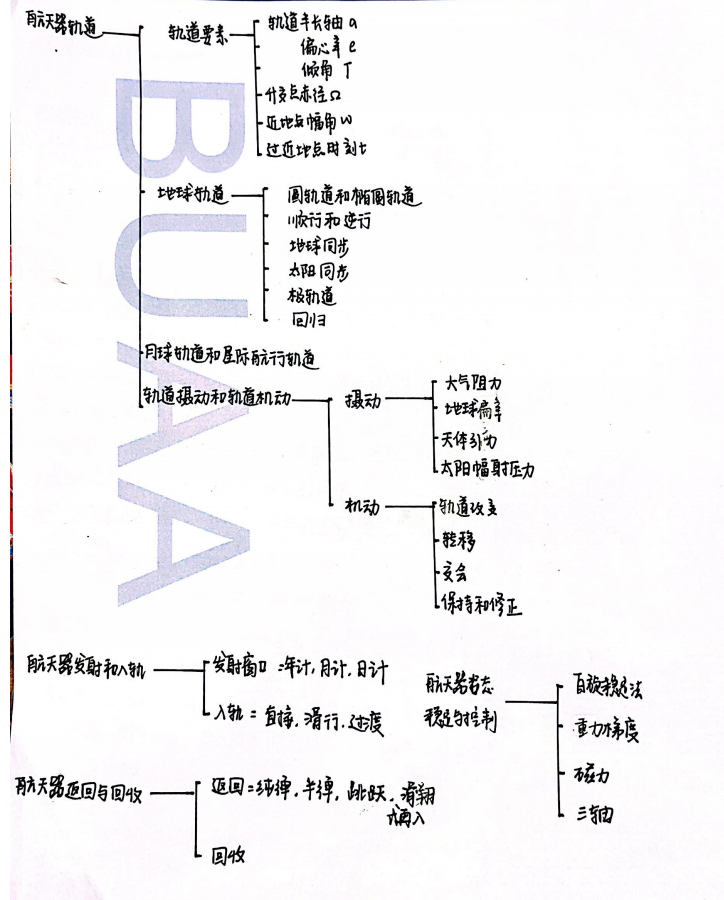 航天器轨道
轨道要素
轨道半长轴 a
偏心率 e
倾角 I
升交点赤径 Ω
近地点幅角 w
过近地点时刻 t
地球轨道
圆轨道和椭圆轨道
顺行和逆行
地球同步
太阳同步
极轨道
回归
月球轨道和星际航行轨道
轨道摄动和轨道机动
摄动
大气阻力
地球扁率
天体引力
太阳幅射压力
机动
轨道改变
转移
交会
保持和修正
航天器发射和入轨
发射窗口:年计,月计,日计
入轨:直接,滑行,过度
航天器姿态
稳定与控制
自旋稳定法
重力梯度
磁力
三轴
航天器返回与回收
返回:纯弹,半弹,跳跃,滑翔
再入
回收
BUAA